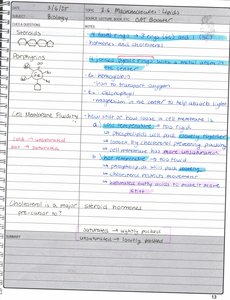 DATE: 3/6/25
TOPIC: 2-6 Macromolecules: Lipids
SUBJECT: Biology
SOURCE: LECTURE, BOOK, ETC. DAT Booster
CUES & QUESTIONS
NOTES
Steroids
4 fused rings → 3 rings and 1
hormones and cholesterol
Porphyrins
4 joined pyrrole rings with a metal atom in the center
Ex: hemoglobin
- iron to transport oxygen
Ex: chlorophyll
- magnesium in the center to help absorb light
Cell Membrane Fluidity
how stiff or loose a cell membrane is
a. cold temperature → too rigid
→ phospholipids will pack closely together
→ cholesterol preventing packing
→ cell membrane has more unsaturation
cold → unsaturated
hot → saturated
b. hot temperature → too fluid
→ phospholipids will pack
→ cholesterol restricts movement
→ saturated fatty acids to make it more stiff
Cholesterol is a major precursor to?
steroid hormones
saturated → tightly packed
SUMMARY
unsaturated → loosely packed
13